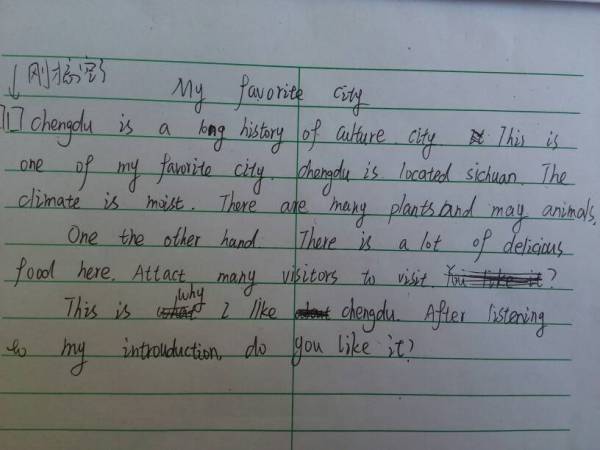 My favorite city
[1] chengdu is a long history of culture city. This is
one of my favorite city. chengdu is located sichuan. The
climate is moist. There are many plants and may animals.
One the other hand There is a lot of delicious
food here. Attact many visitors to visit. You like it?
This is why I like chengdu. After listening
to my introuduction, do you like it?